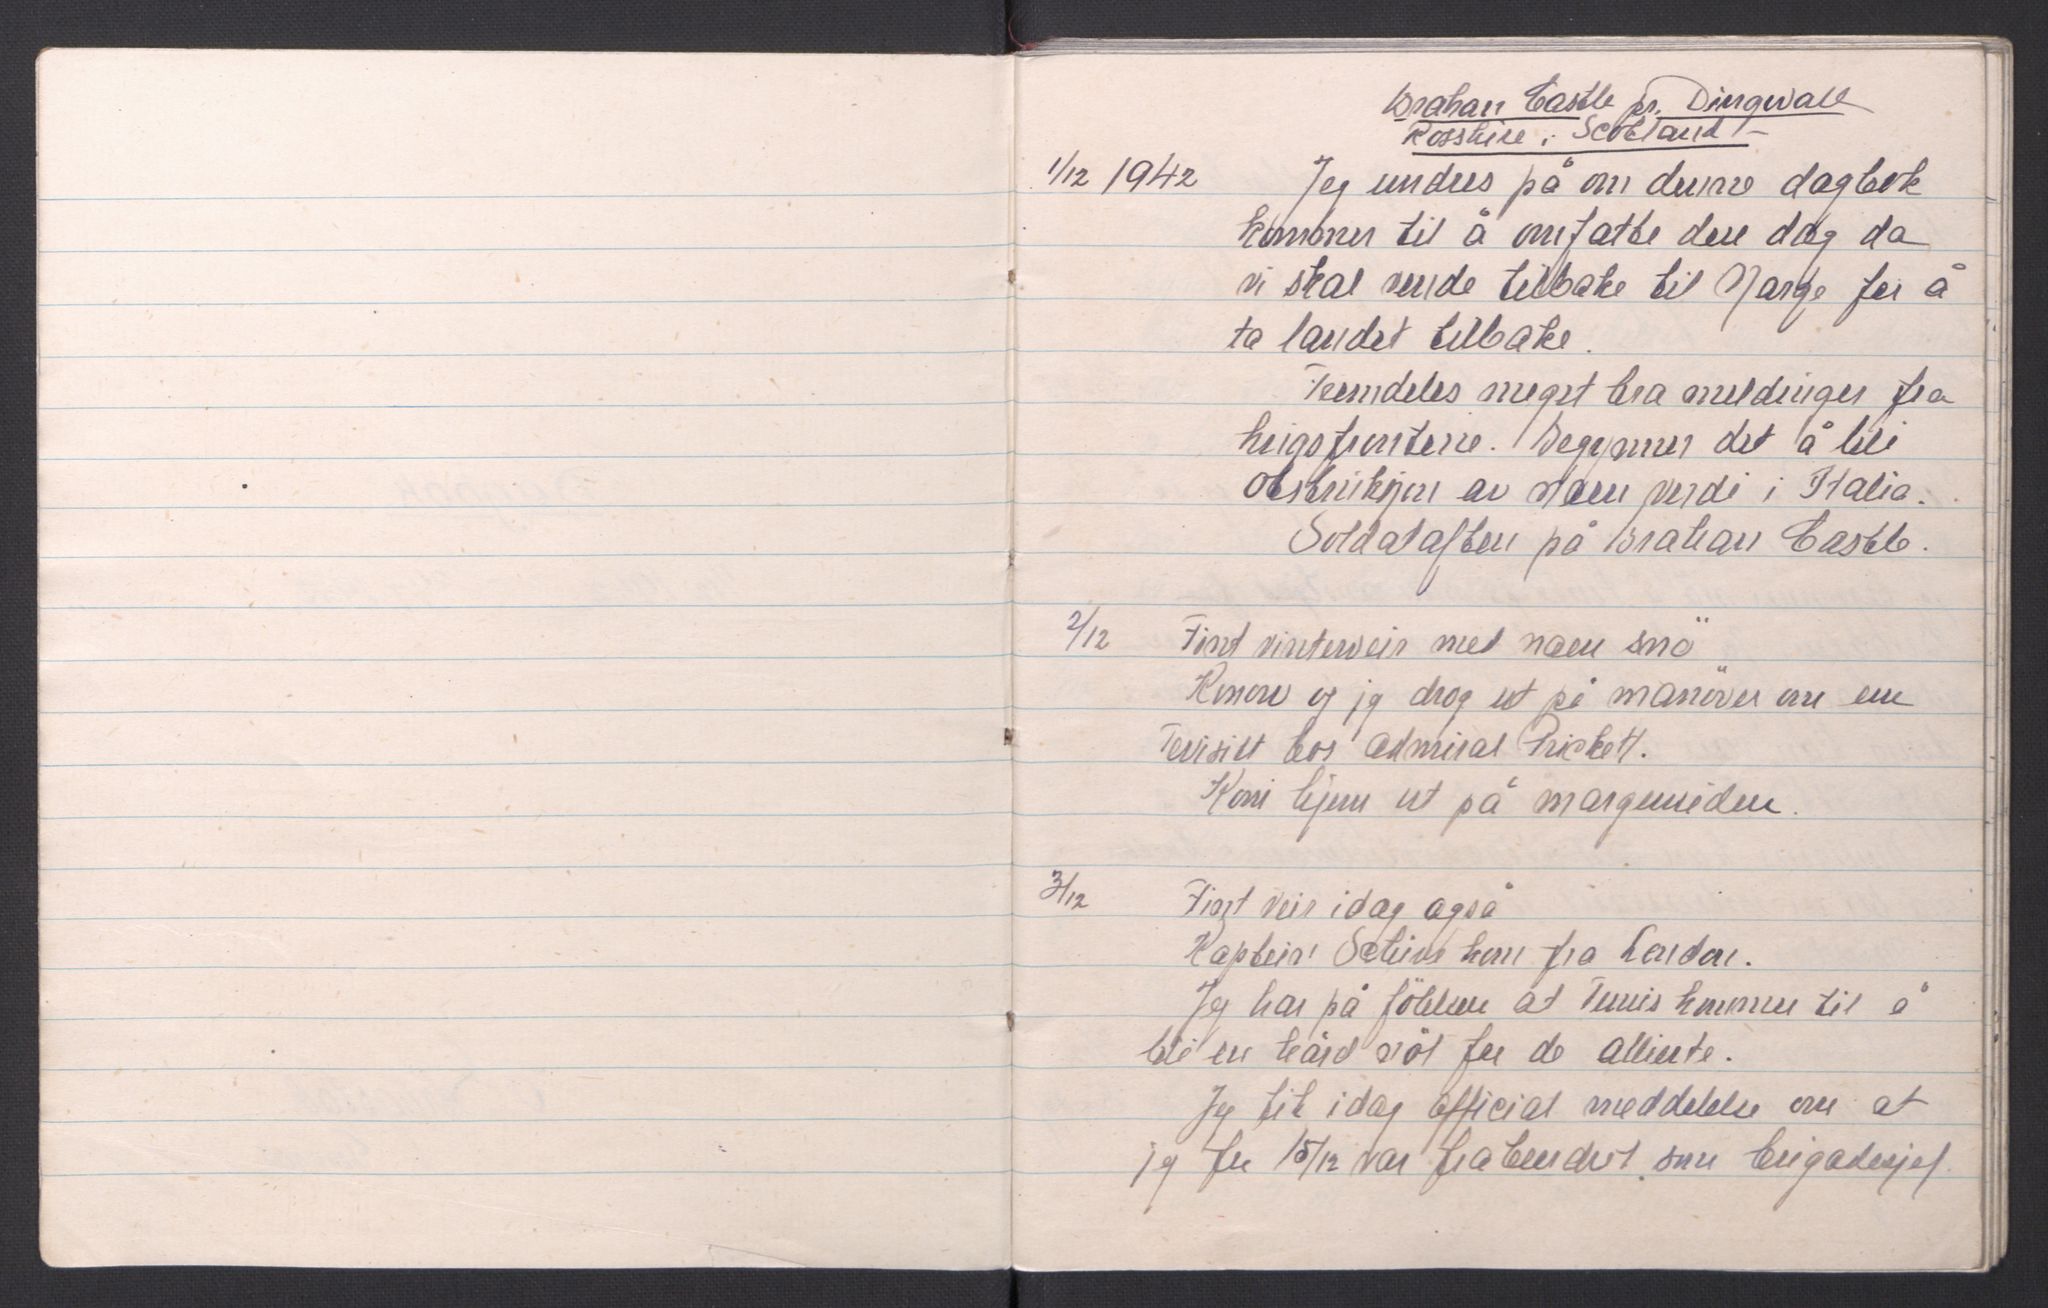 Brahan Castle pr. Dingwall
Rosshire i Scotland
1/12 1942 Jeg undres på om denne dagbok
kommer til å omfatte den dag da
vi skal vende tilbake til Norge for å
ta landet tilbake.
Fremdeles meget bra meldinger fra
krigsfrontene. Begynner det å bli
av noen verdi i Italia.
Soldataften på Brahan Castle.
2/12 Fint vinterveir med noen snö
Konow og jeg drog ut på manöver om en
Tevisitt hos admiral Prickett.
Kom hjem ut på morgensiden.
3/12 Fint veir idag også
Kaptein Schive kom fra London.
Jeg har på fölelsen at Tunis kommer til å
bli en hård nöt for de allierte.
Jeg fik idag official meddelelse om at
jeg fra 15/12 var frabeordret som brigadesjef.